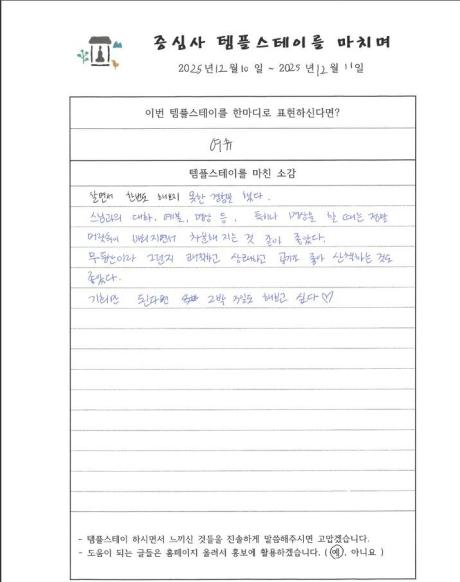 증심사 템플스테이를 마치며
2025년 12월 10일 ~ 2025년 12월 11일
이번 템플스테이를 한마디로 표현하신다면?
여유
템플스테이를 마친 소감
살면서 한번도 해보지 못한 경험을 했다.
스님과의 대화, 예불, 명상 등. 특히나 명상을 할 때는 정말
머릿속이 비워지면서 차분해 지는 것 같이 좋았다.
무등산이라 그런지 쾌적하고 상쾌하고 공기도 좋아 산책하는 것도
좋았다.
기회가 된다면 2박 3일도 해보고 싶다♡
- 템플스테이 하시면서 느끼신 것들을 진솔하게 말씀해주시면 고맙겠습니다.
- 도움이 되는 글들은 홈페이지 올려서 홍보에 활용하겠습니다. ( 예, 아니요 )